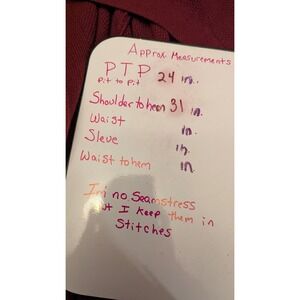 Approx. Measurements
PTP 24 in.
Pit to pit
Shoulder to hem 31 in.
Waist in.
Sleve in.
Waist to hem in
I'm no Seamstress
but I keep them in
Stitches